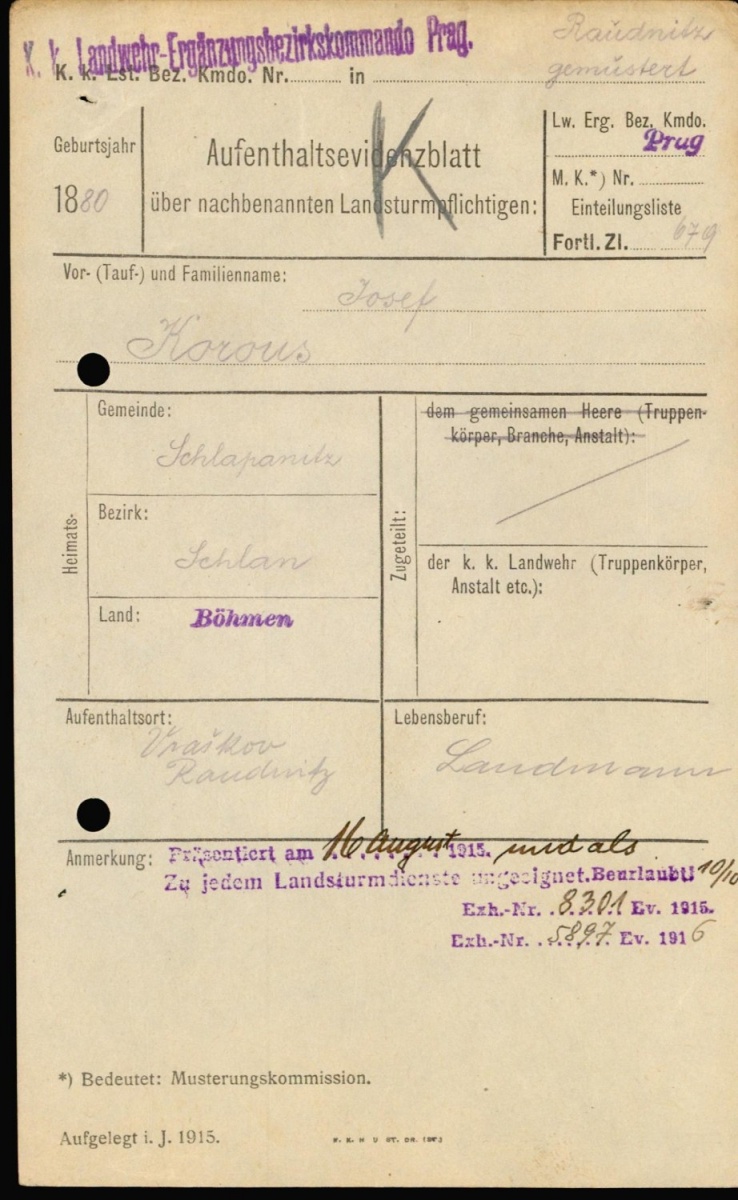 K. k. Landwehr-Ergänzungsbezirkskommando Prag.
K. k. Lst. Bez. Kmdo. Nr. in Raudnitz
gemustert
Geburtsjahr
1880
Aufenthaltsevidenzblatt
über nachbenannten Landsturmpflichtigen:
K
Lw. Erg. Bez. Kmdo.
Prag
M. K.*) Nr.
Einteilungsliste
Fortl. Zl. 679
Vor- (Tauf-) und Familienname:
Josef
Korous
Heimats-
Gemeinde:
Schlapanitz
Bezirk:
Schlan
Land: Böhmen
Zugeteilt:
dem gemeinsamen Heere (Truppen-
körper, Branche, Anstalt):
der k. k. Landwehr (Truppenkörper,
Anstalt etc.):
Aufenthaltsort:
Vraškov
Raudnitz
Lebensberuf:
Landmann
Anmerkung: Präsentiert am 16 August 1915. und als
Zu jedem Landsturmdienste ungeeignet. Beurlaubt! 10/10
Exh.-Nr. 8301 Ev. 1915.
Exh.-Nr. 5897 Ev. 1916
*) Bedeutet: Musterungskommission.
Aufgelegt i. J. 1915.